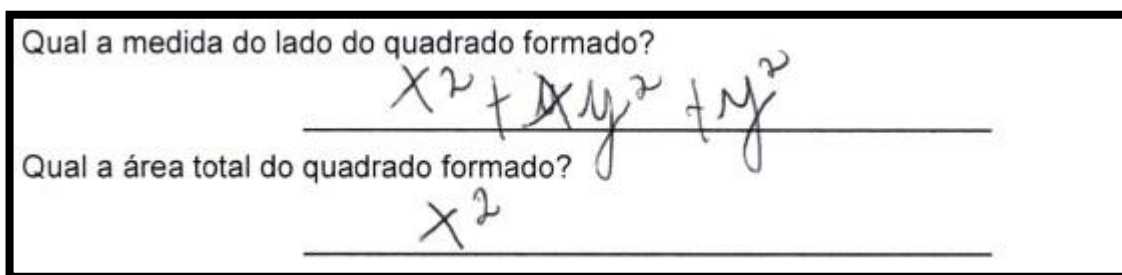 Qual a medida do lado do quadrado formado?
x² + xy² + y²
Qual a área total do quadrado formado?
x²